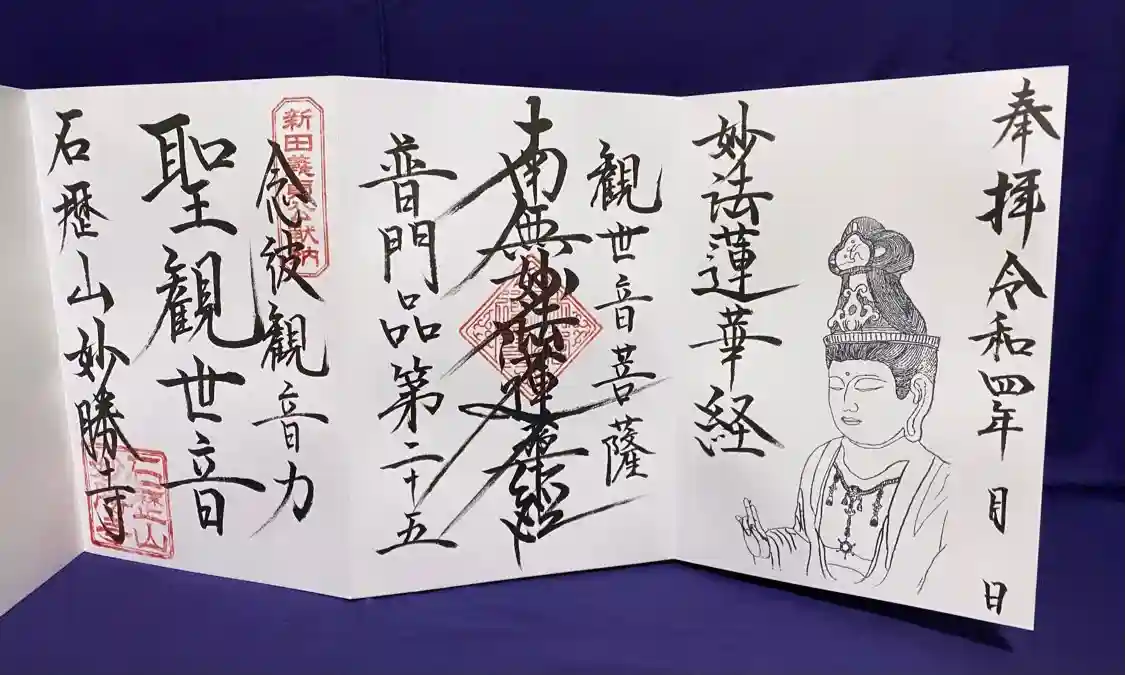 奉拝令和四年 月 日
妙法蓮華経
観世音菩薩
南無妙法蓮華經
普門品第二十五
新田義貞公献納
念彼観音力
聖観世音
石歴山妙勝寺